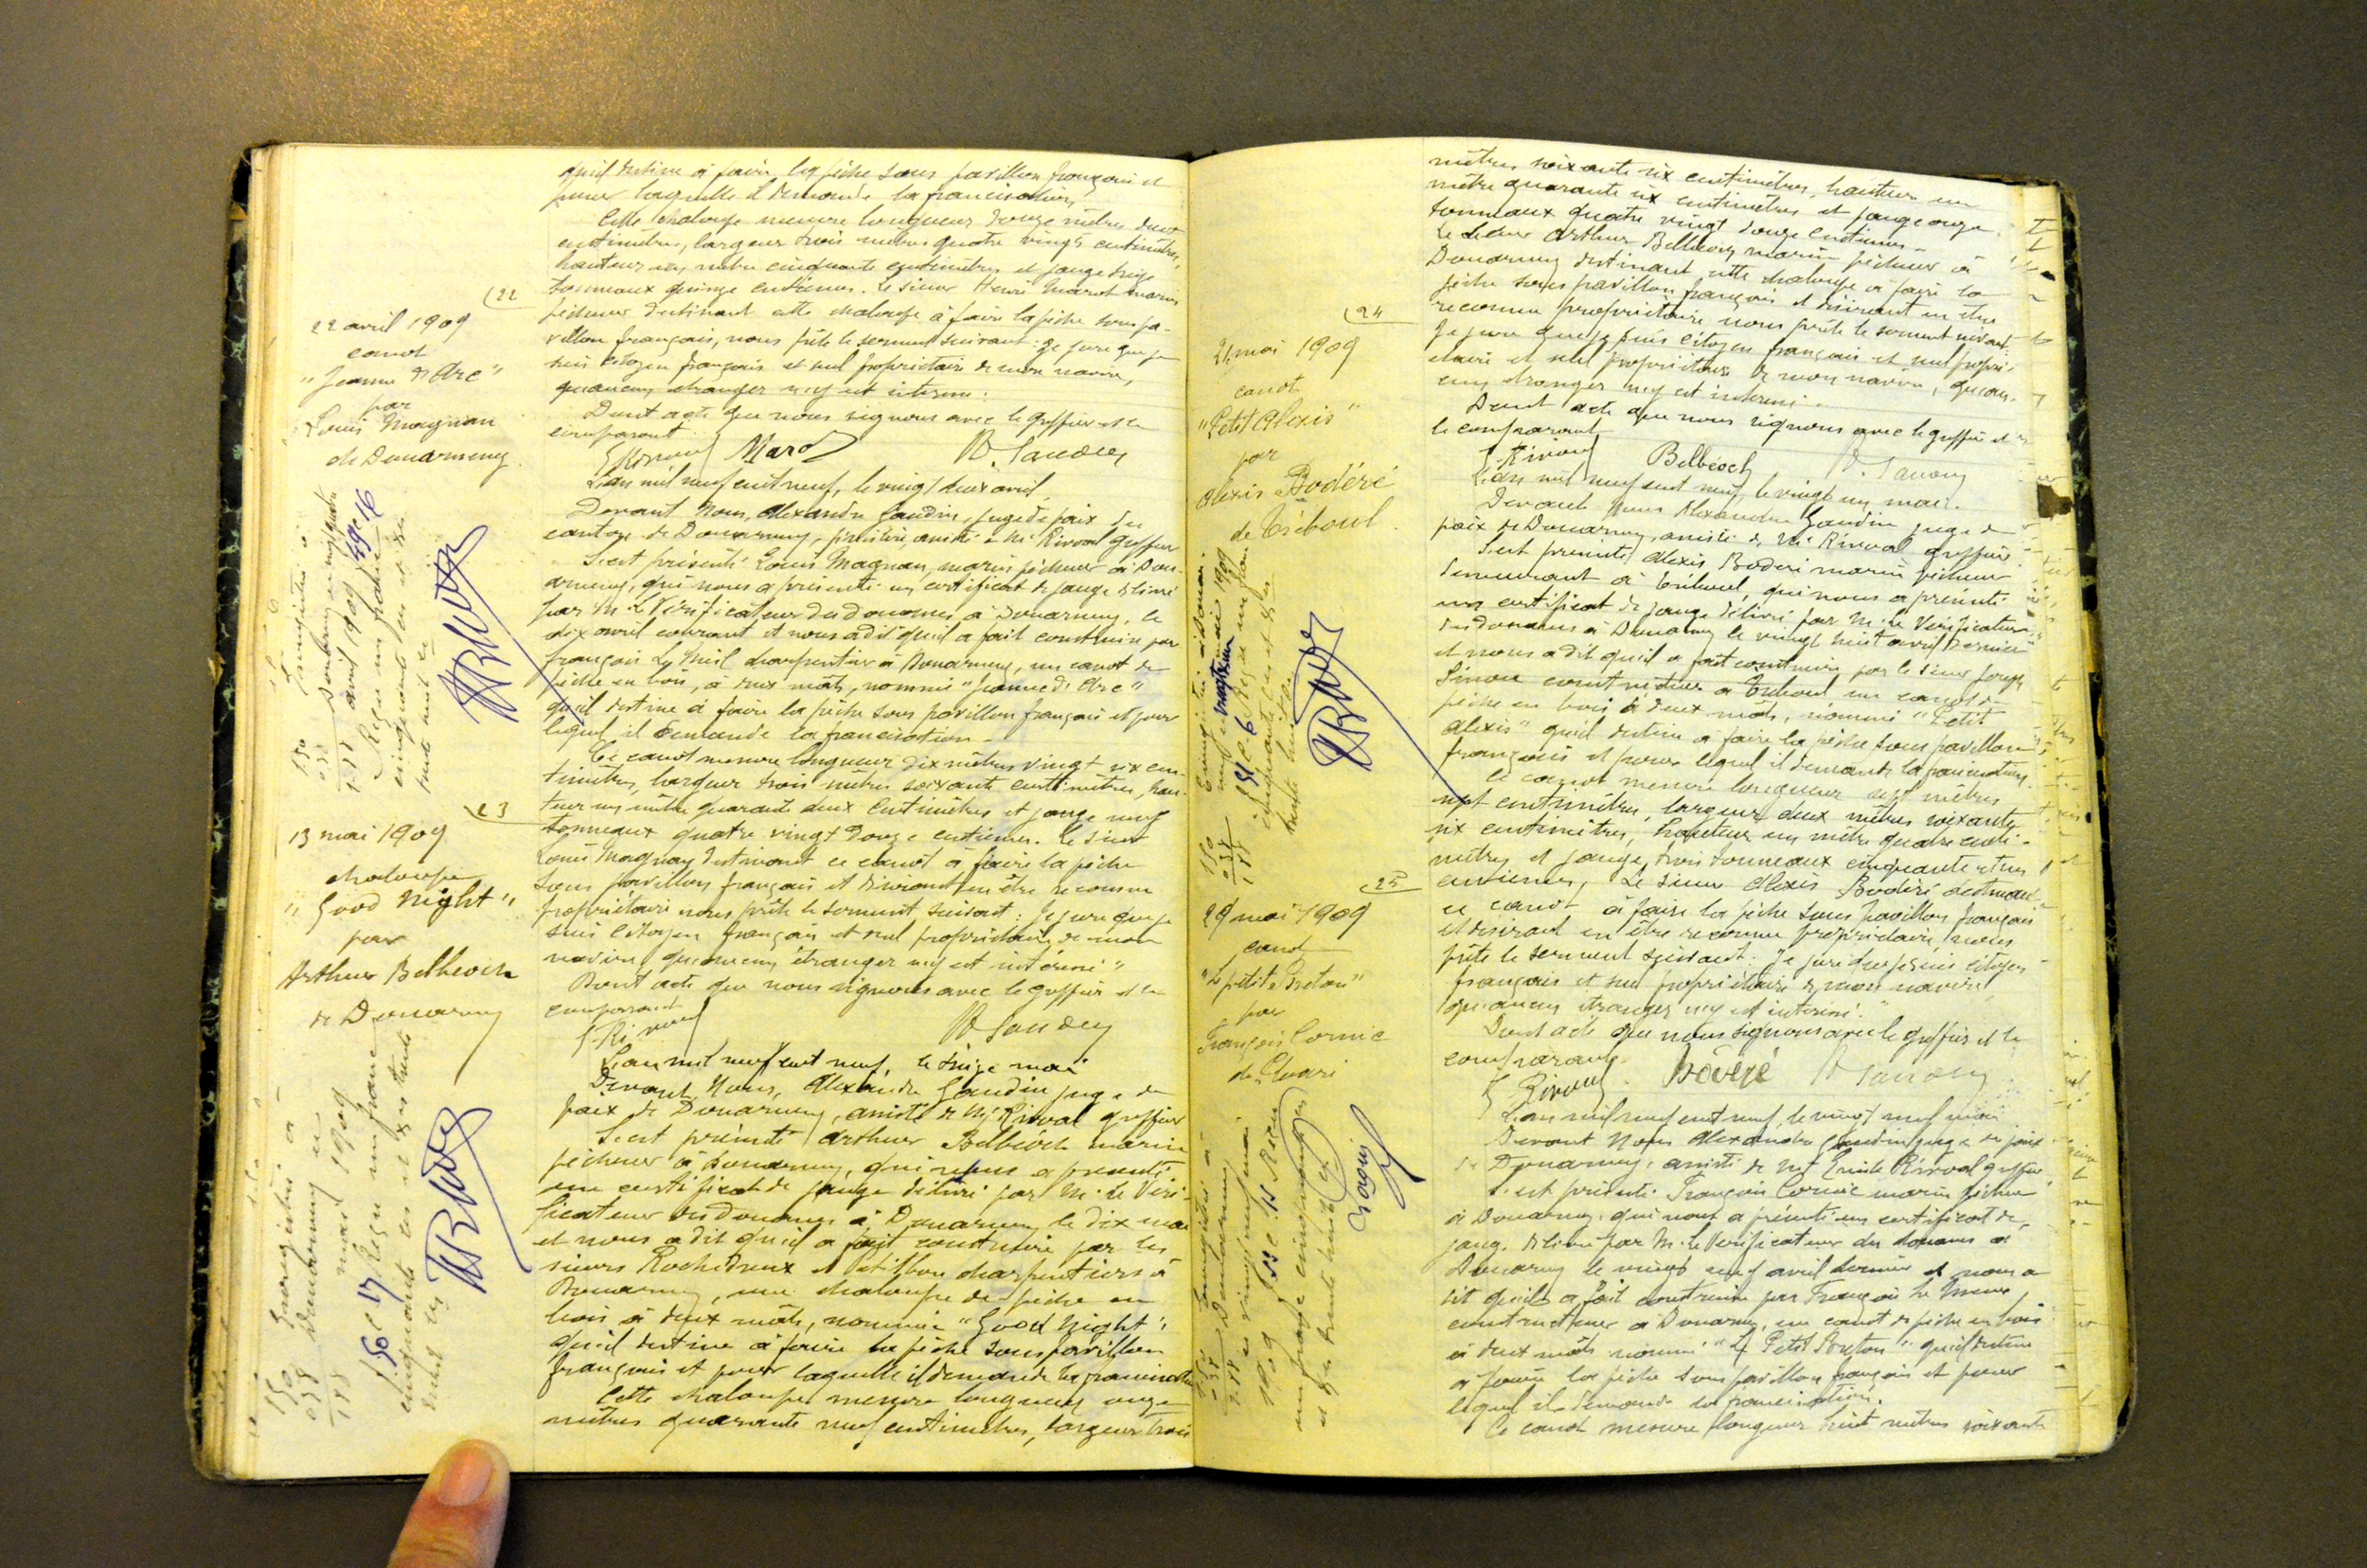 qu'il destine à faire la pêche sous pavillon français et
pour laquelle il demande la francisation,
Cette chaloupe mesure longueur douze mètres deux
centimètres, largeur trois mètres quatre vingts centimètres,
hauteur un mètre cinquante centimètres et jauge treize
tonneaux quinze centièmes. Le sieur Henri Marot marin
pêcheur destinant cette chaloupe à faire la pêche sous pa-
villon français, nous prête le serment suivant: Je jure que je
suis citoyen français et seul propriétaire de mon navire,
qu'aucun étranger n'y est intéressé.
Dont acte que nous signons avec le greffier et le
comparant.
E Rivoal Marot A. Gaudin
(22
22 avril 1909
canot
"Jeanne d'Arc"
par
Louis Magnan
de Douarnenez
Enregistré à
Douarnenez
avril 1909 49 c 16
Reçu un franc
cinquante
150
038
188
L'an mil neuf cent neuf, le vingt deux avril,
Devant Nous, Alexandre Gaudin, juge de paix du
canton de Douarnenez, Finistère, assisté de Me Rivoal greffier
S'est présenté Louis Magnan, marin pêcheur à Dou-
arnenez, qui nous a présenté un certificat de jauge délivré
par M. le Vérificateur des douanes, à Douarnenez, le
dix avril courant et nous a dit qu'il a fait construire par
François charpentier à Douarnenez, un canot de
pêche en bois, à deux mâts, nommé "Jeanne d'Arc"
qu'il destine à faire la pêche sous pavillon français et pour
lequel il demande la francisation.
Ce canot mesure longueur dix mètres vingt six cen-
timètres, largeur trois mètres soixante centimètres, hau-
teur un mètre quarante deux centimètres et jauge neuf
tonneaux quatre vingt douze centièmes. Le sieur
Louis Magnan destinant ce canot à faire la pêche
sous pavillon français et désirant en être reconnu
propriétaire nous prête le serment suivant: Je jure que je
suis citoyen français et seul propriétaire de mon
navire, qu'aucun étranger n'y est intéressé"
Dont acte que nous signons avec le greffier et le
comparant
E. Rivoal A. Gaudin
23
13 mai 1909
chaloupe
"Good Night"
par
Arthur Belbeoch
de Douarnenez
Enregistré à
Douarnenez
mai 1909
50 c 17 Reçu un franc
cinquante
150
038
188
L'an mil neuf cent neuf, le treize mai
Devant Nous, Alexandre Gaudin juge de
paix de Douarnenez, assisté de Me Rivoal greffier
S'est présenté Arthur Belbéoch marin
pêcheur à Douarnenez, qui nous a présenté
un certificat de jauge délivré par M. le Véri-
ficateur des douanes à Douarnenez le dix mai
et nous a dit qu'il a fait construire par les
sieurs Rochedreux et charpentiers à
Douarnenez, une chaloupe de pêche en
bois à deux mâts, nommée "Good Night",
qu'il destine à faire la pêche sous pavillon
français et pour laquelle il demande la francisation
Cette chaloupe mesure longueur onze
mètres quarante neuf centimètres, largeur trois
mètres soixante six centimètres, hauteur un
mètre quarante six centimètres et jauge onze
tonneaux quatre vingt douze centièmes.
Le sieur Arthur Belbéoch marin pêcheur à
Douarnenez destinant cette chaloupe à faire la
pêche sous pavillon français et désirant en être
reconnu propriétaire nous prête le serment suivant
Je jure que je suis citoyen français et seul propri-
étaire et seul propriétaire de mon navire, qu'au-
cun étranger n'y est intéressé.
Dont acte que nous signons avec le greffier et
le comparant
E. Rivoal Belbéoch A. Gaudin
(24
21 mai 1909
canot
"Petit Alexis"
par
Alexis Bodéré
de Tréboul.
Enregistré à Douarnenez
mai 1909
51 c 6 Reçu un franc
cinquante
150
038
188
L'an mil neuf cent neuf, le vingt un mai.
Devant Nous Alexandre Gaudin juge de
paix de Douarnenez, assisté de Me Rivoal greffier
S'est présenté Alexis Bodéré marin pêcheur
demeurant à Tréboul, qui nous a présenté
un certificat de jauge délivré par M. le Vérificateur
des douanes à Douarnenez le vingt huit avril dernier
et nous a dit qu'il a fait construire par le sieur Joseph
Simon constructeur à Tréboul un canot de
pêche en bois à deux mâts, nommé "Petit
Alexis" qu'il destine à faire la pêche sous pavillon
français et pour lequel il demande la francisation.
Ce canot mesure longueur sept mètres
sept centimètres, largeur deux mètres soixante
six centimètres, hauteur un mètre quatre centi-
mètres et jauge trois tonneaux cinquante et un
centièmes, Le sieur Alexis Bodéré destinant
ce canot à faire la pêche sous pavillon français
et désirant en être reconnu propriétaire nous
prête le serment suivant: "Je jure que je suis citoyen
français et seul propriétaire de mon navire,
qu'aucun étranger n'y est intéressé."
Dont acte que nous signons avec le greffier et le
comparant.
E Rivoal. Bodéré A Gaudin
(25
29 mai 1909
canot
"Le petit Breton"
par
François Cornic
de Ploaré
Enregistré à
Douarnenez
le vingt neuf mai
1909
un franc cinquante
L'an mil neuf cent neuf, le vingt neuf mai
Devant Nous Alexandre Gaudin juge de paix
de Douarnenez, assisté de Me Emile Rivoal greffier,
S'est présenté François Cornic marin pêcheur
à Douarnenez, qui nous a présenté un certificat de
jauge délivré par M. le Vérificateur des douanes à
Douarnenez le vingt neuf avril dernier et nous a
dit qu'il a fait construire par François
constructeur à Douarnenez, un canot de pêche en bois
à deux mâts nommé "Le Petit Breton" qu'il destine
à faire la pêche sous pavillon français et pour
lequel il demande la francisation.
Ce canot mesure longueur huit mètres soixante